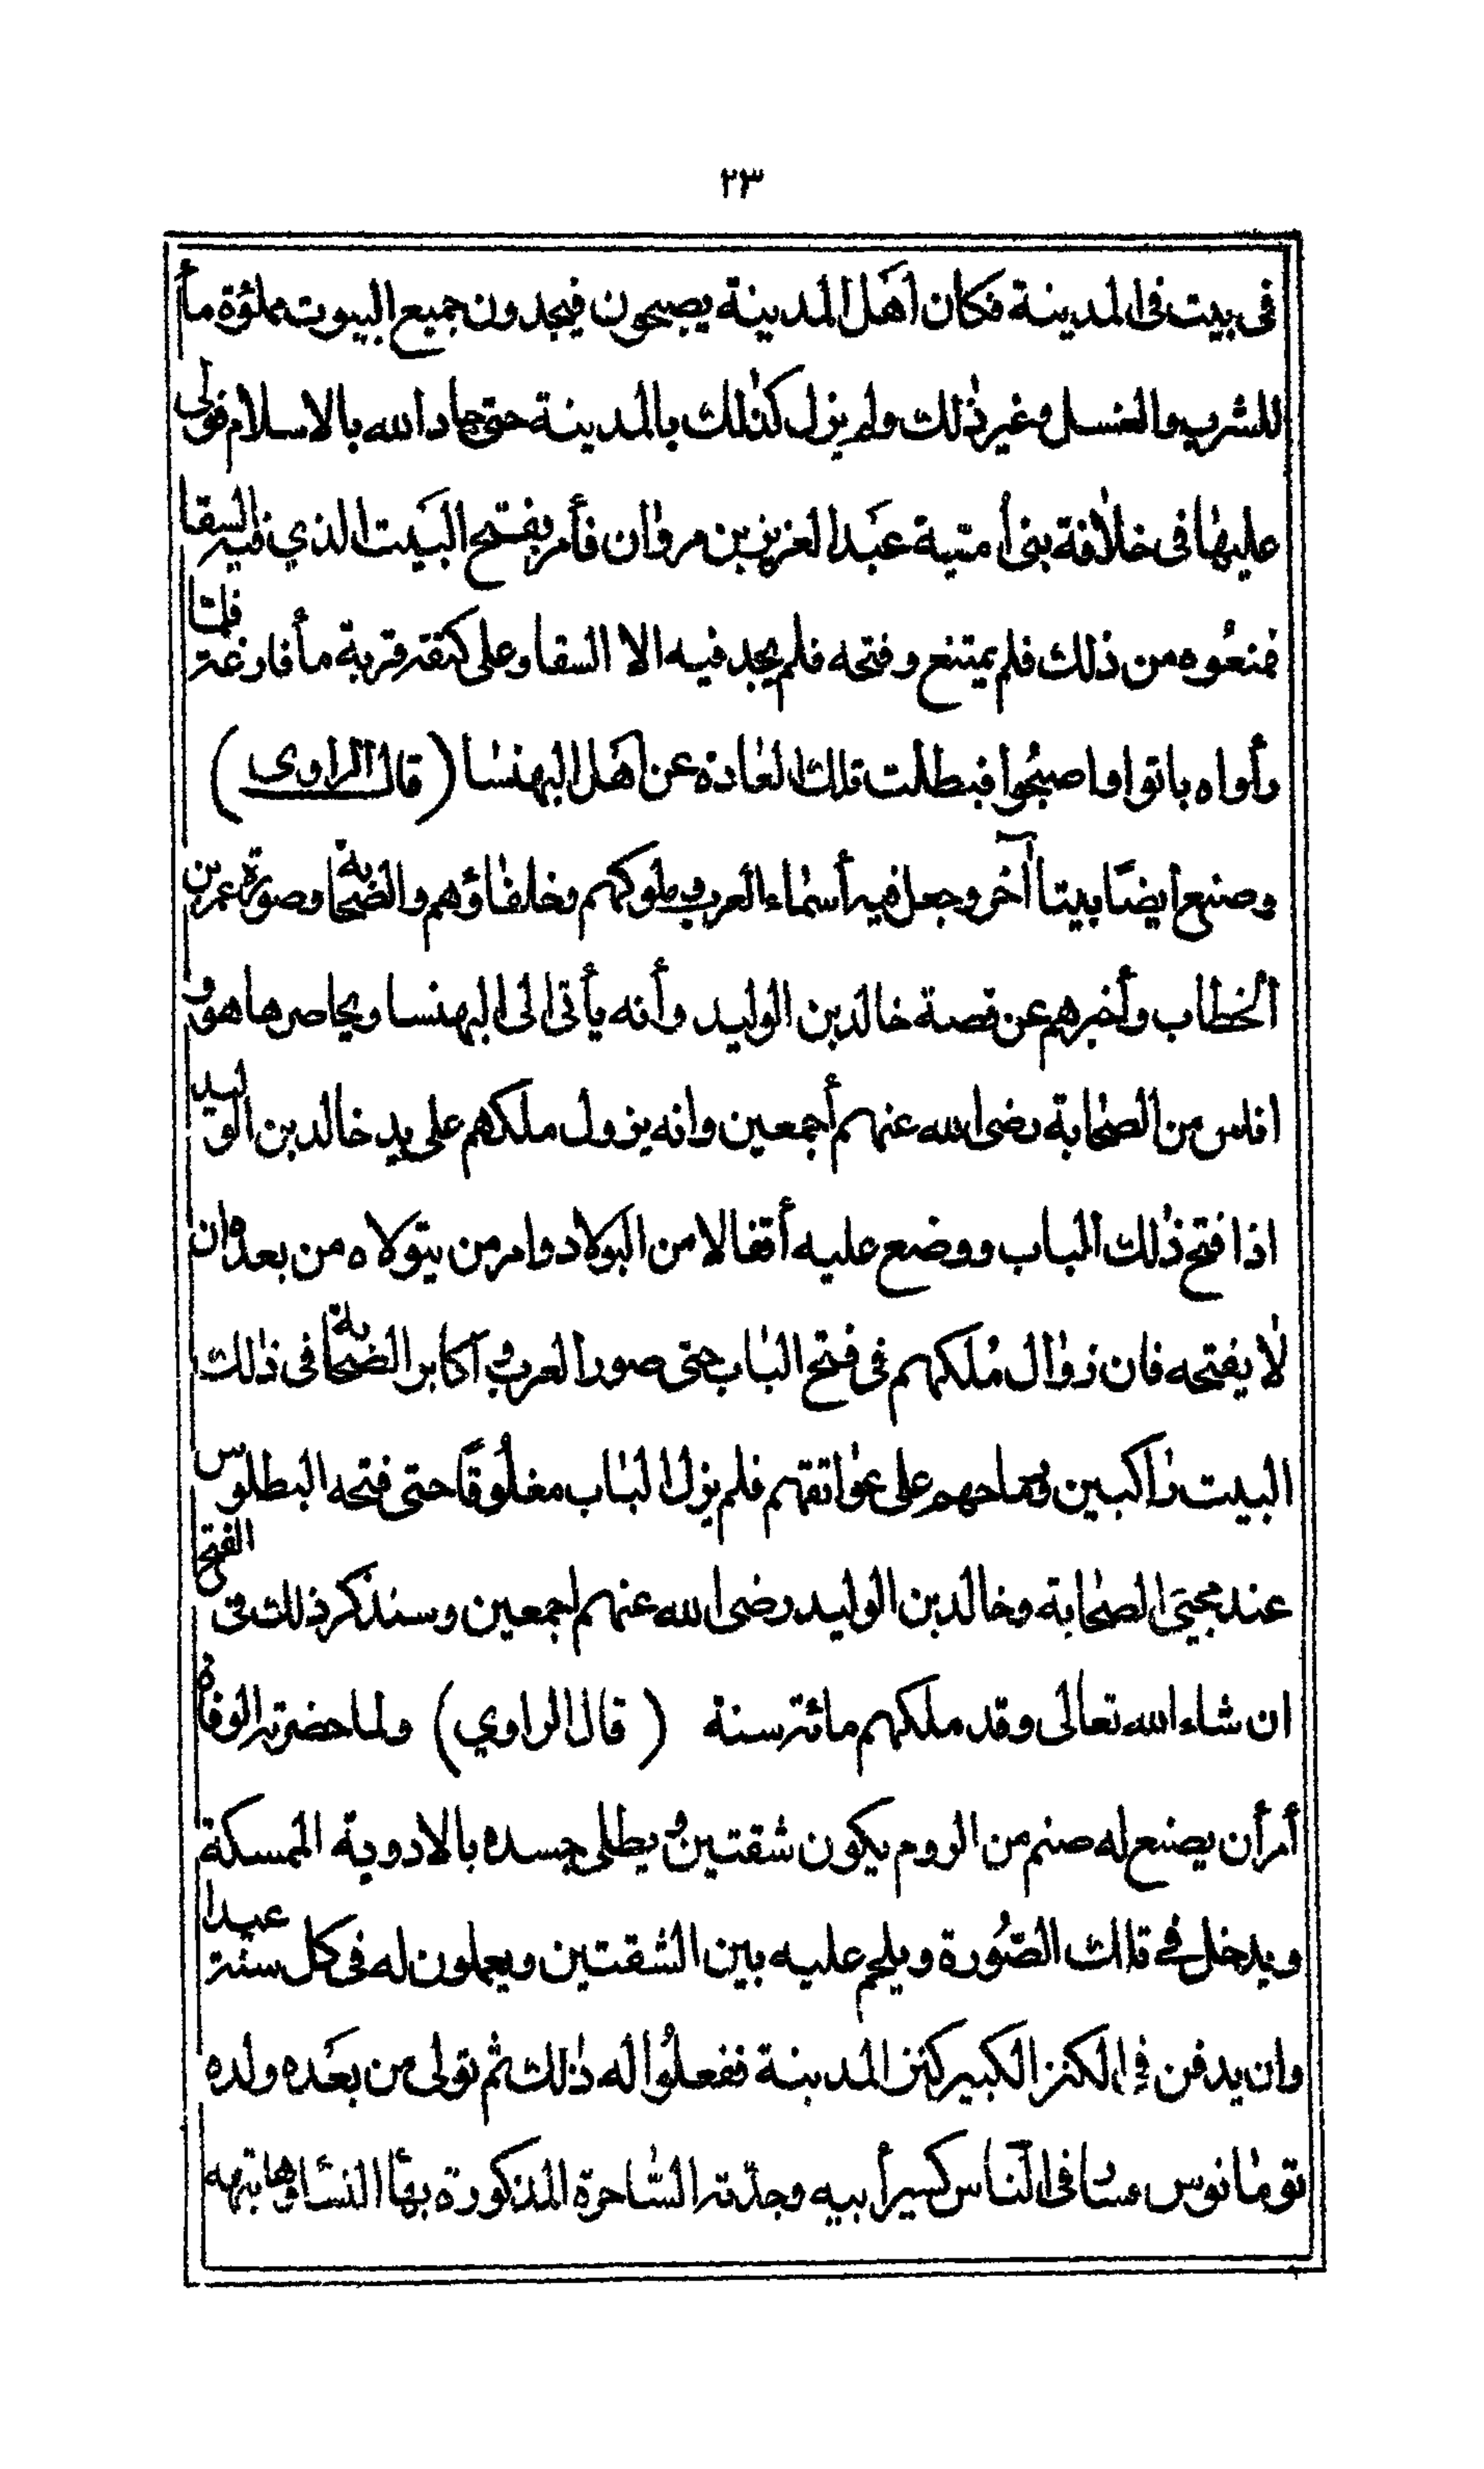 ٢٣
فى بيت فى المدينة فكان أهل المدينة يصبحون فيجدون جميع البيوت مملؤة مأ
للشرب والغسل وغير ذلك ولم يزل كذلك بالمدينة حتى جاد الله بالاسلام فولى
عليها فى خلافة بنى أمتية عبد العزيز بن مروان فأمر بفتح البيت الذي فيه السقا
فمنعوه من ذلك فلم يمتنع وفتحه فلم يجد فيه الا السقا وعلى كتفه قربة مأ فارغة فلما
رأواه باتوا واصبحوا فبطلت تلك العادة عن أهل البهنسا (قال الراوى)
وصنع ايضا بيتا آخر وجعل فيه أسماء العرب وملوكهم وخلفاؤهم والصحابة وصورة عمر بن
الخطاب وأخبرهم عن قصة خالد بن الوليد وأنه يأتى الى البهنسا ويحاصرها هو و
اناس من الصحابة رضى الله عنهم أجمعين وانه يزول ملكهم على يد خالد بن الوليد
اذا فتح ذلك الباب ووضع عليه أقفالا من البولاد وامر من يتولاه من بعده ان
لا يفتحه فان زوال ملكهم فى فتح الباب حتى صور العرب و آكابر الصحابة فى ذلك
البيت راكبين ورماحهم على عواتقهم فلم يزل الباب مغلوقا حتى فتحه البطلوس
عند مجيئ الصحابة وخالد بن الوليد رضى الله عنهم اجمعين وسنذكر ذلك فى الفتح
ان شاء الله تعالى وقد ملكهم مائة سنة (قال الراوي) ولما حضرته الوفاة
أمر أن يصنع له صنم من الروم يكون شقتين و يطلى جسده بالادوية الممسكة
ويدخل في تلك الصورة ويلحم عليه بين الشقتين ويعملون له فى كل سنة عيدا
وان يدفن فى الكنز الكبير كنز المدينة ففعلوا له ذلك ثم تولى من بعده ولده
توماتوس فى الناس كسير أبيه وجدته الساحرة المذكورة بهأ النسا وهابته